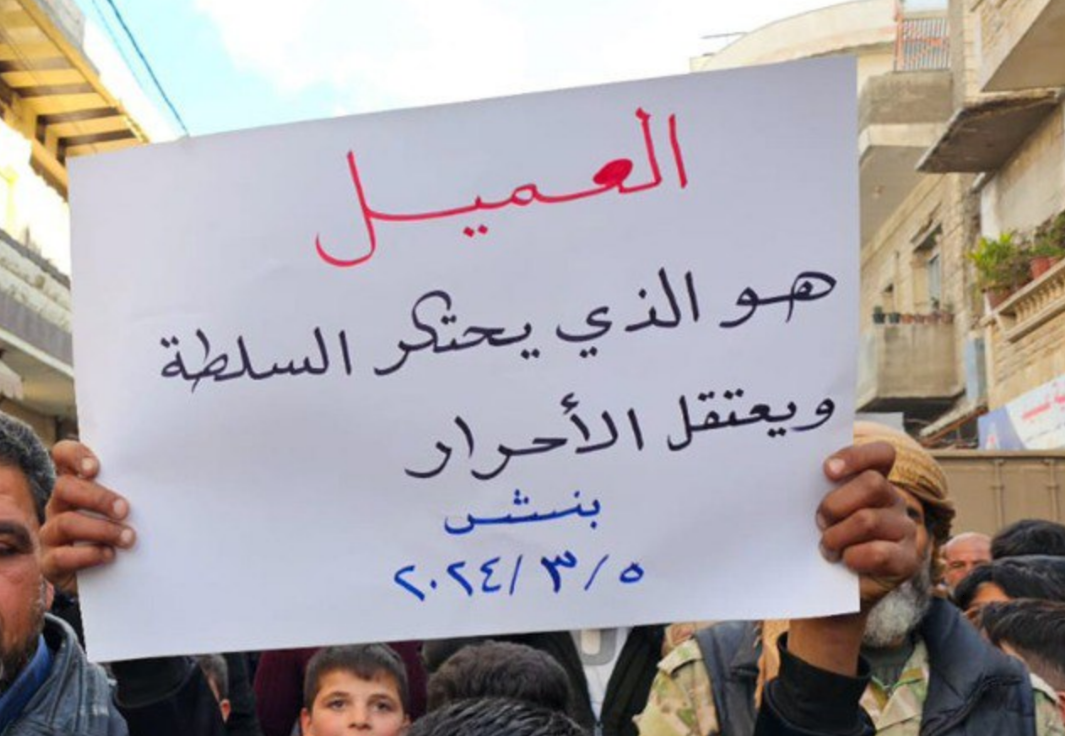 العميل
هو الذي يحتكر السلطة
ويعتقل الأحرار
بنش
٢٠٢٤/٣/٥